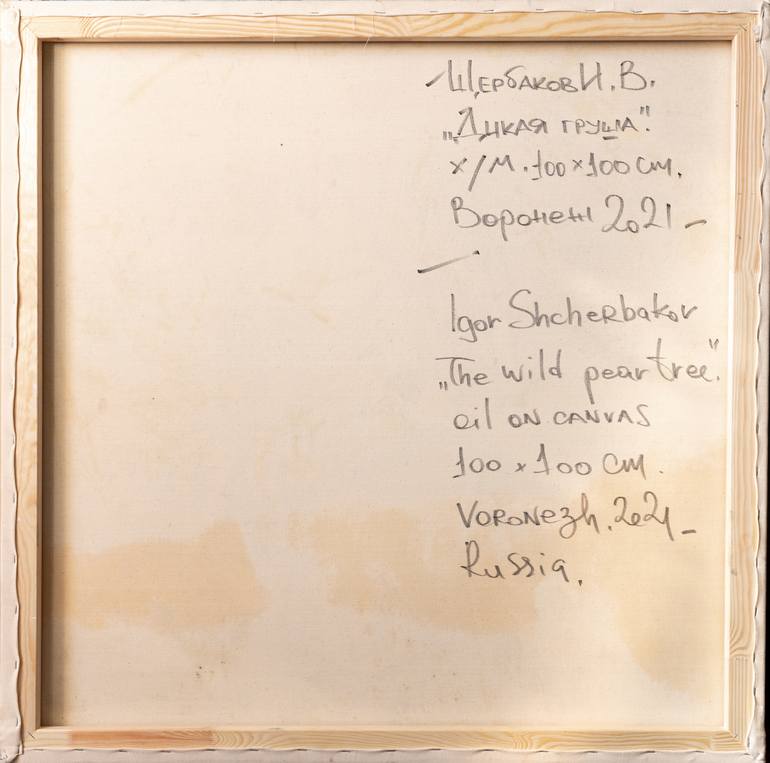 Щербаков И.В.
„Дикая груша".
х/м. 100×100 см.
Воронеж 2021 –
Igor Shcherbakov
„The wild pear tree".
oil on canvas
100 × 100 cm.
Voronezh. 2021 –
Russia.